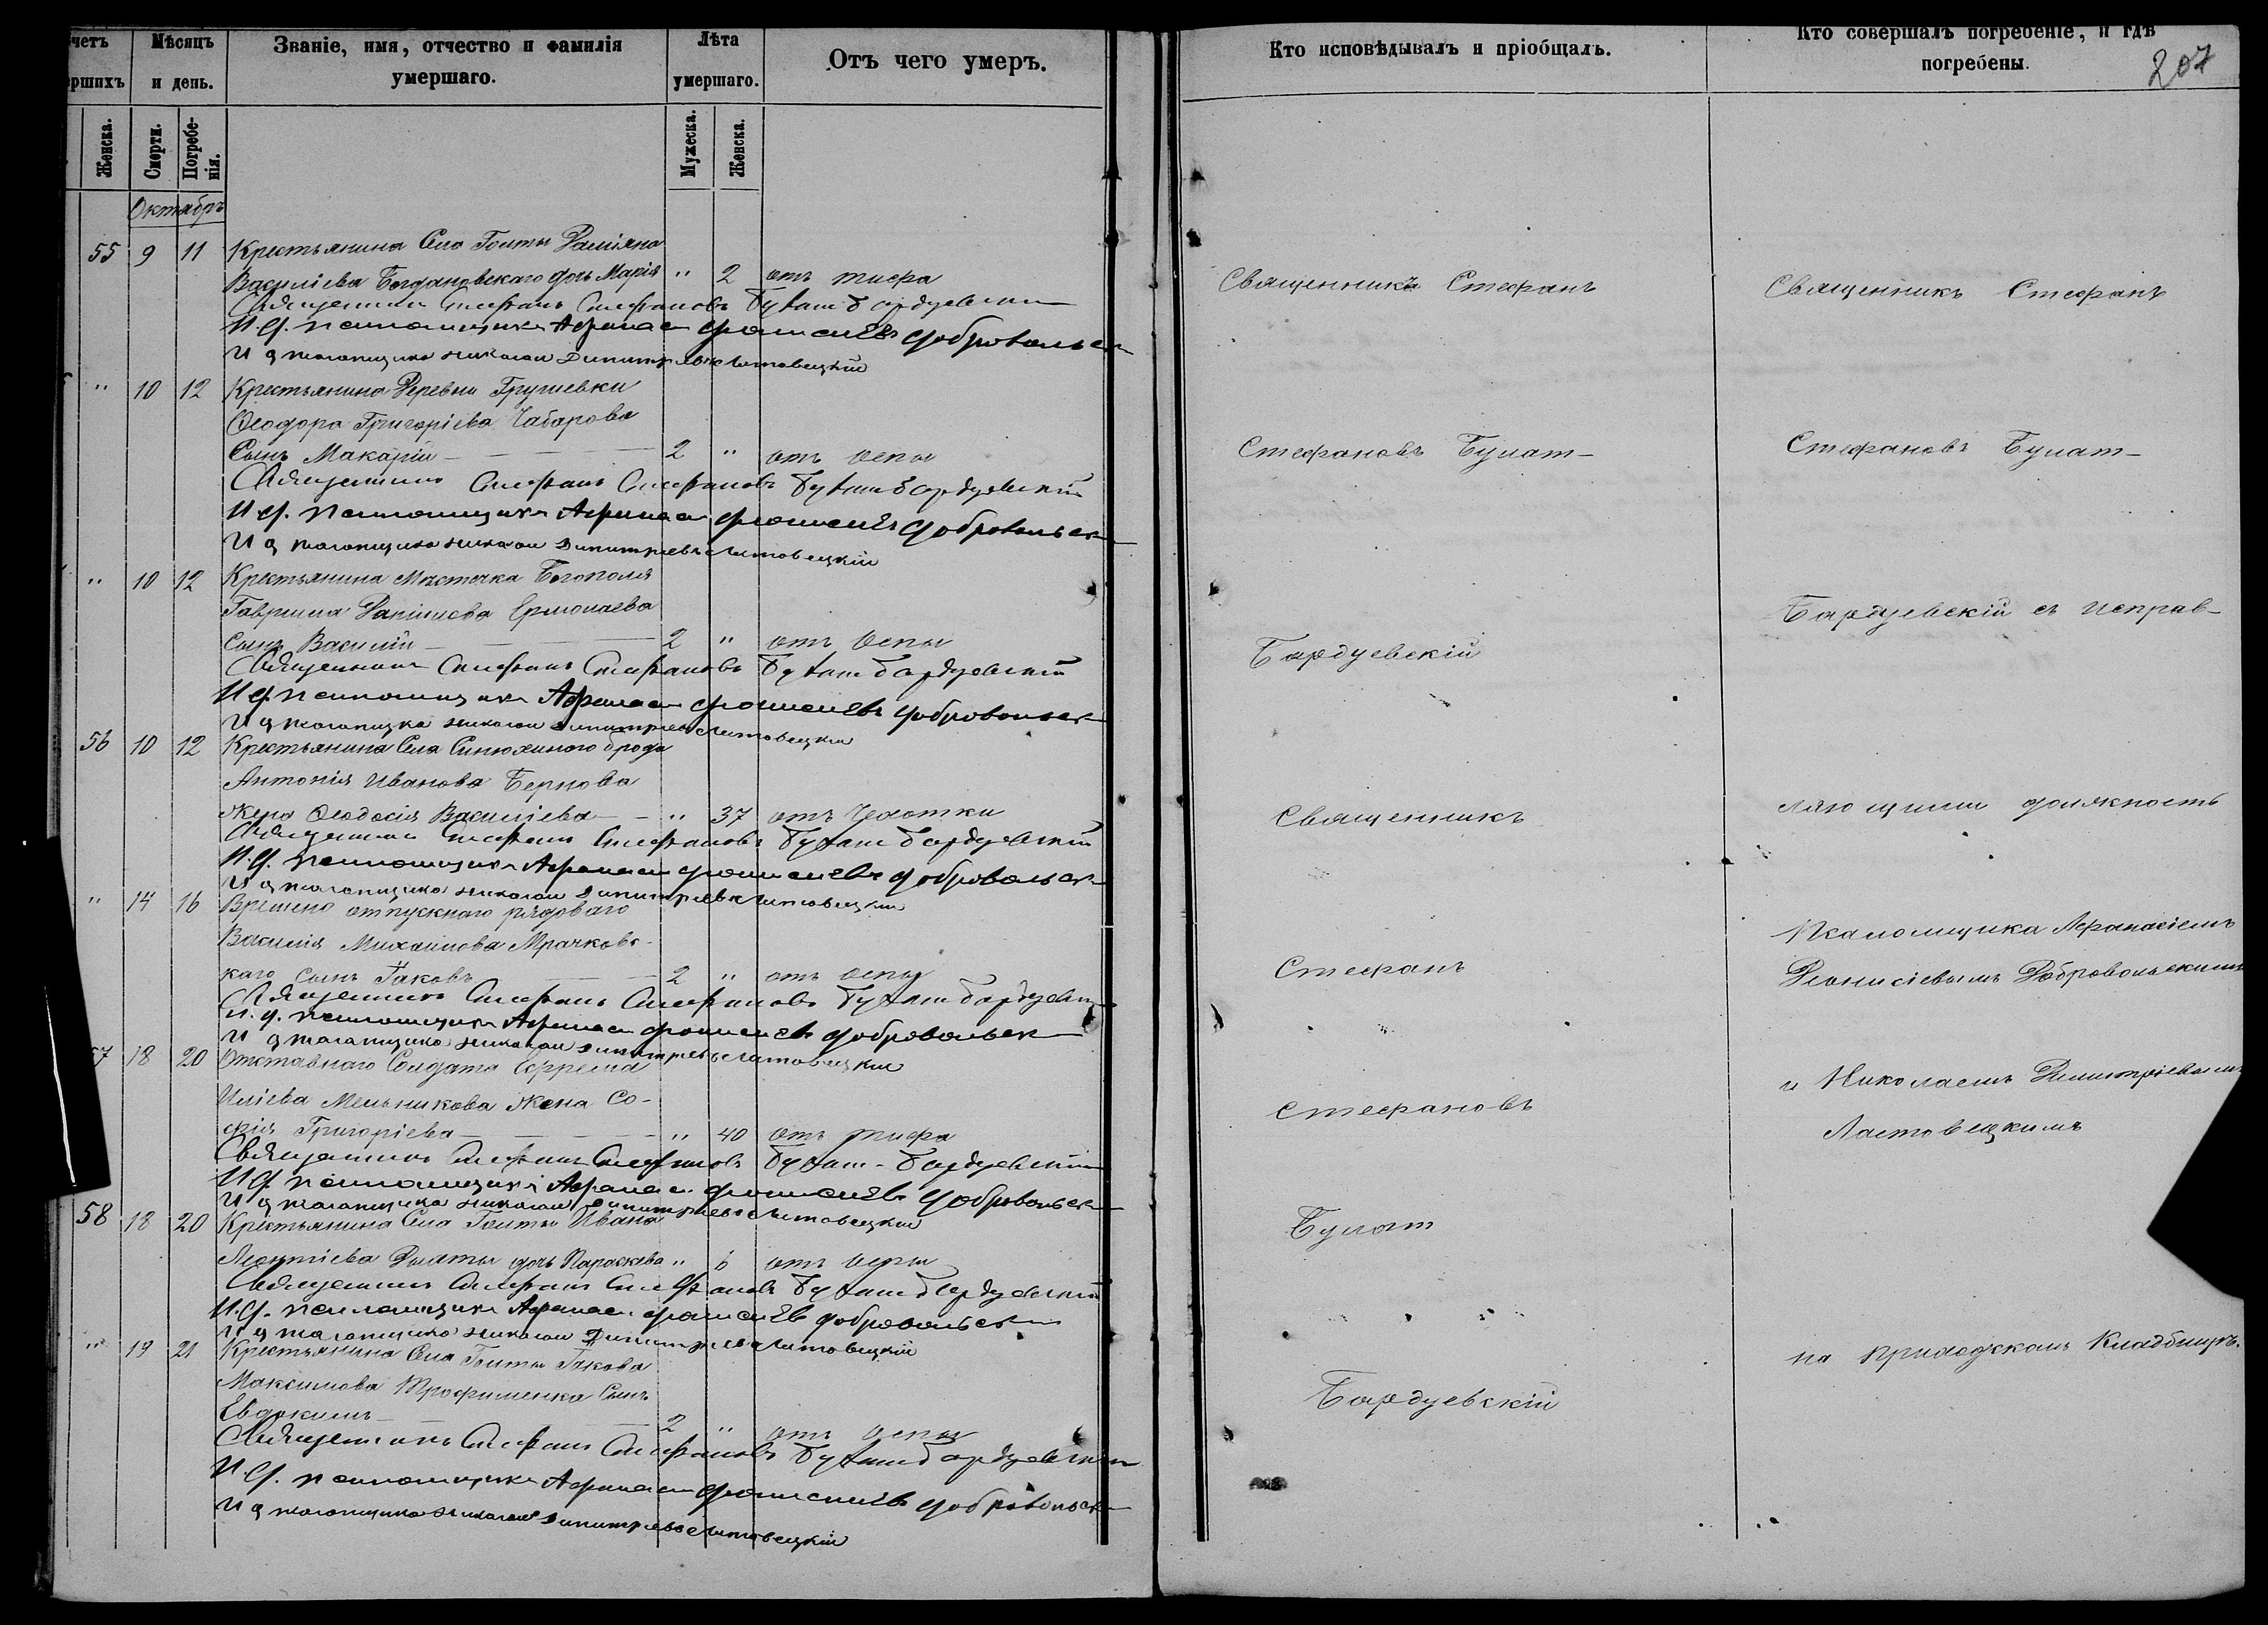 четъ
ершихъ
Мѣсяцъ
и день.
Званіе, имя, отчество и фамилія
умершаго.
Лѣта
умершаго.
Отъ чего умеръ.
Женска.
Смерти.
Погребе-
нія.
Мужеска.
Женска.
Октябрь
55 9 11 Крестьянина Села Голты Даміяна
Василіева Богдановскаго дочь Марія " 2 отъ тифа
Священникъ Стефанъ Стефановъ Булат Бардуевскій
И. д. псаломщика Афанасій Діонисіевъ Добровольск
И д псаломщика Николай Димитріевъ Листовецкій
" 10 12 Крестьянина Деревни Грушевки
Ѳеодора Григоріева Чабарова
Сынъ Макарій 2 " отъ оспы
Священникъ Стефанъ Стефановъ Булат Бардуевскій
И. д. псаломщика Афанасій Діонисіевъ Добровольск
И д псаломщика Николай Димитріевъ Листовецкій
" 10 12 Крестьянина Мястечка Богополя
Гавриила Даніилова Ермолаева
Сынъ Василій 2 " отъ оспы
Священникъ Стефанъ Стефановъ Булат Бардуевскій
И д. псаломщика Афанасій Діонисіевъ Добровольск
И д псаломщика Николай Димитріевъ Листовецкій
56 10 12 Крестьянина Села Синюхиного брода
Антонія Иванова Бернова
жена Ѳеодосія Василіева " 37 отъ Чахотки
Священникъ Стефанъ Стефановъ Булат Бардуевскій
И. д. псаломщика Афанасій Діонисіевъ Добровольск
И д псаломщика Николай Димитріевъ Листовецкій
" 14 16 Времено отпускного рядоваго
Василія Михаилова Мрачковс-
каго сынъ Іаковъ 2 " отъ оспы
Священникъ Стефанъ Стефановъ Булат Бардуевск
И. д. псаломщика Афанасій Діонисіевъ Добровольск
И д псаломщика Николай Димитріевъ Листовецкій
57 18 20 Отставного Солдата Ефрема
Иліева Мельникова жена Со-
фія Григоріева " 40 отъ тифа
Священникъ Стефанъ Стефановъ Булат-Бардуевскій
И д. псаломщика Афанасій Діонисіевъ Добровольск
И д псаломщика Николай Димитріевъ Листовецкій
58 18 20 Крестьянина Села Голты Ивана
Леонтіева дочь Параскева " 6 отъ оспы
Священникъ Стефанъ Стефановъ Булат Бардуевскій
И. д. псаломщика Афанасій Діонисіевъ Добровольск
И д псаломщика Николай Димитріевъ Листовецкій
" 19 21 Крестьянина Села Голты Іакова
Максимова Трофименка Сынъ
Евдокимъ 2 " отъ оспы
Священникъ Стефанъ Стефановъ Булат Бардуевскій
И д. псаломщика Афанасій Діонисіевъ Добровольск
И д псаломщика Николай Димитріевъ Листовецкій
Кто исповѣдывалъ и пріобщалъ.
Священникъ Стефанъ
Стефановъ Булат-
Бардуевскій
Священникъ
Стефанъ
Стефановъ
Булат
Бардуевскій
Кто совершалъ погребеніе, и гдѣ
погребены.
207
Священникъ Стефанъ
Стефановъ Булат-
Бардуевскій съ исправ-
ляющими должность
Псаломщика Афанасіемъ
Діонисіевымъ Добровольскимъ
и Николаемъ Димитріевымъ
Листовецкимъ
на приходскомъ Кладбищѣ.